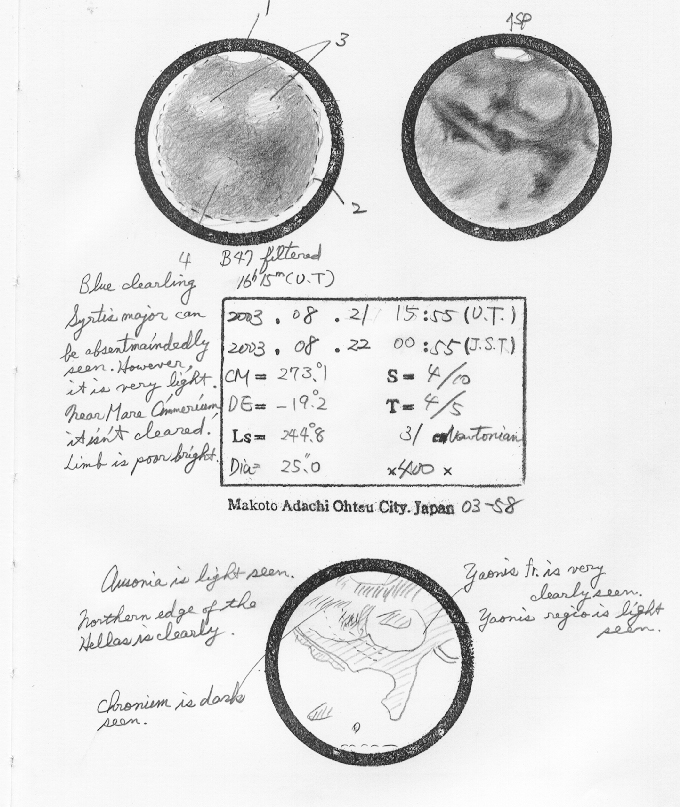 1
3
↑SP
2
4 B47 filtered
16h 15m (U.T)
Blue clearling
Syrtis major can
be absentmaindedly
seen. However,
it is very light.
Near Mare Cimmerium
it isn't cleared.
Limb is poor bright.
2003 . 08 . 21 15:55 (U.T.)
2003 . 08 . 22 00:55 (J.S.T.)
CM = 273.°1 S = 4/10
DE = -19.°2 T = 4/5
Ls = 244.°8 31 Newtonian
Dia = 25.″0 ×400 ×
Makoto Adachi Ohtsu City. Japan 03-58
Ausonia is light seen.
Northern edge of the
Hellas is clearly.
Chronium is dark
seen.
Yaonis fr. is very
clearly seen.
Yaonis regio is light
seen.